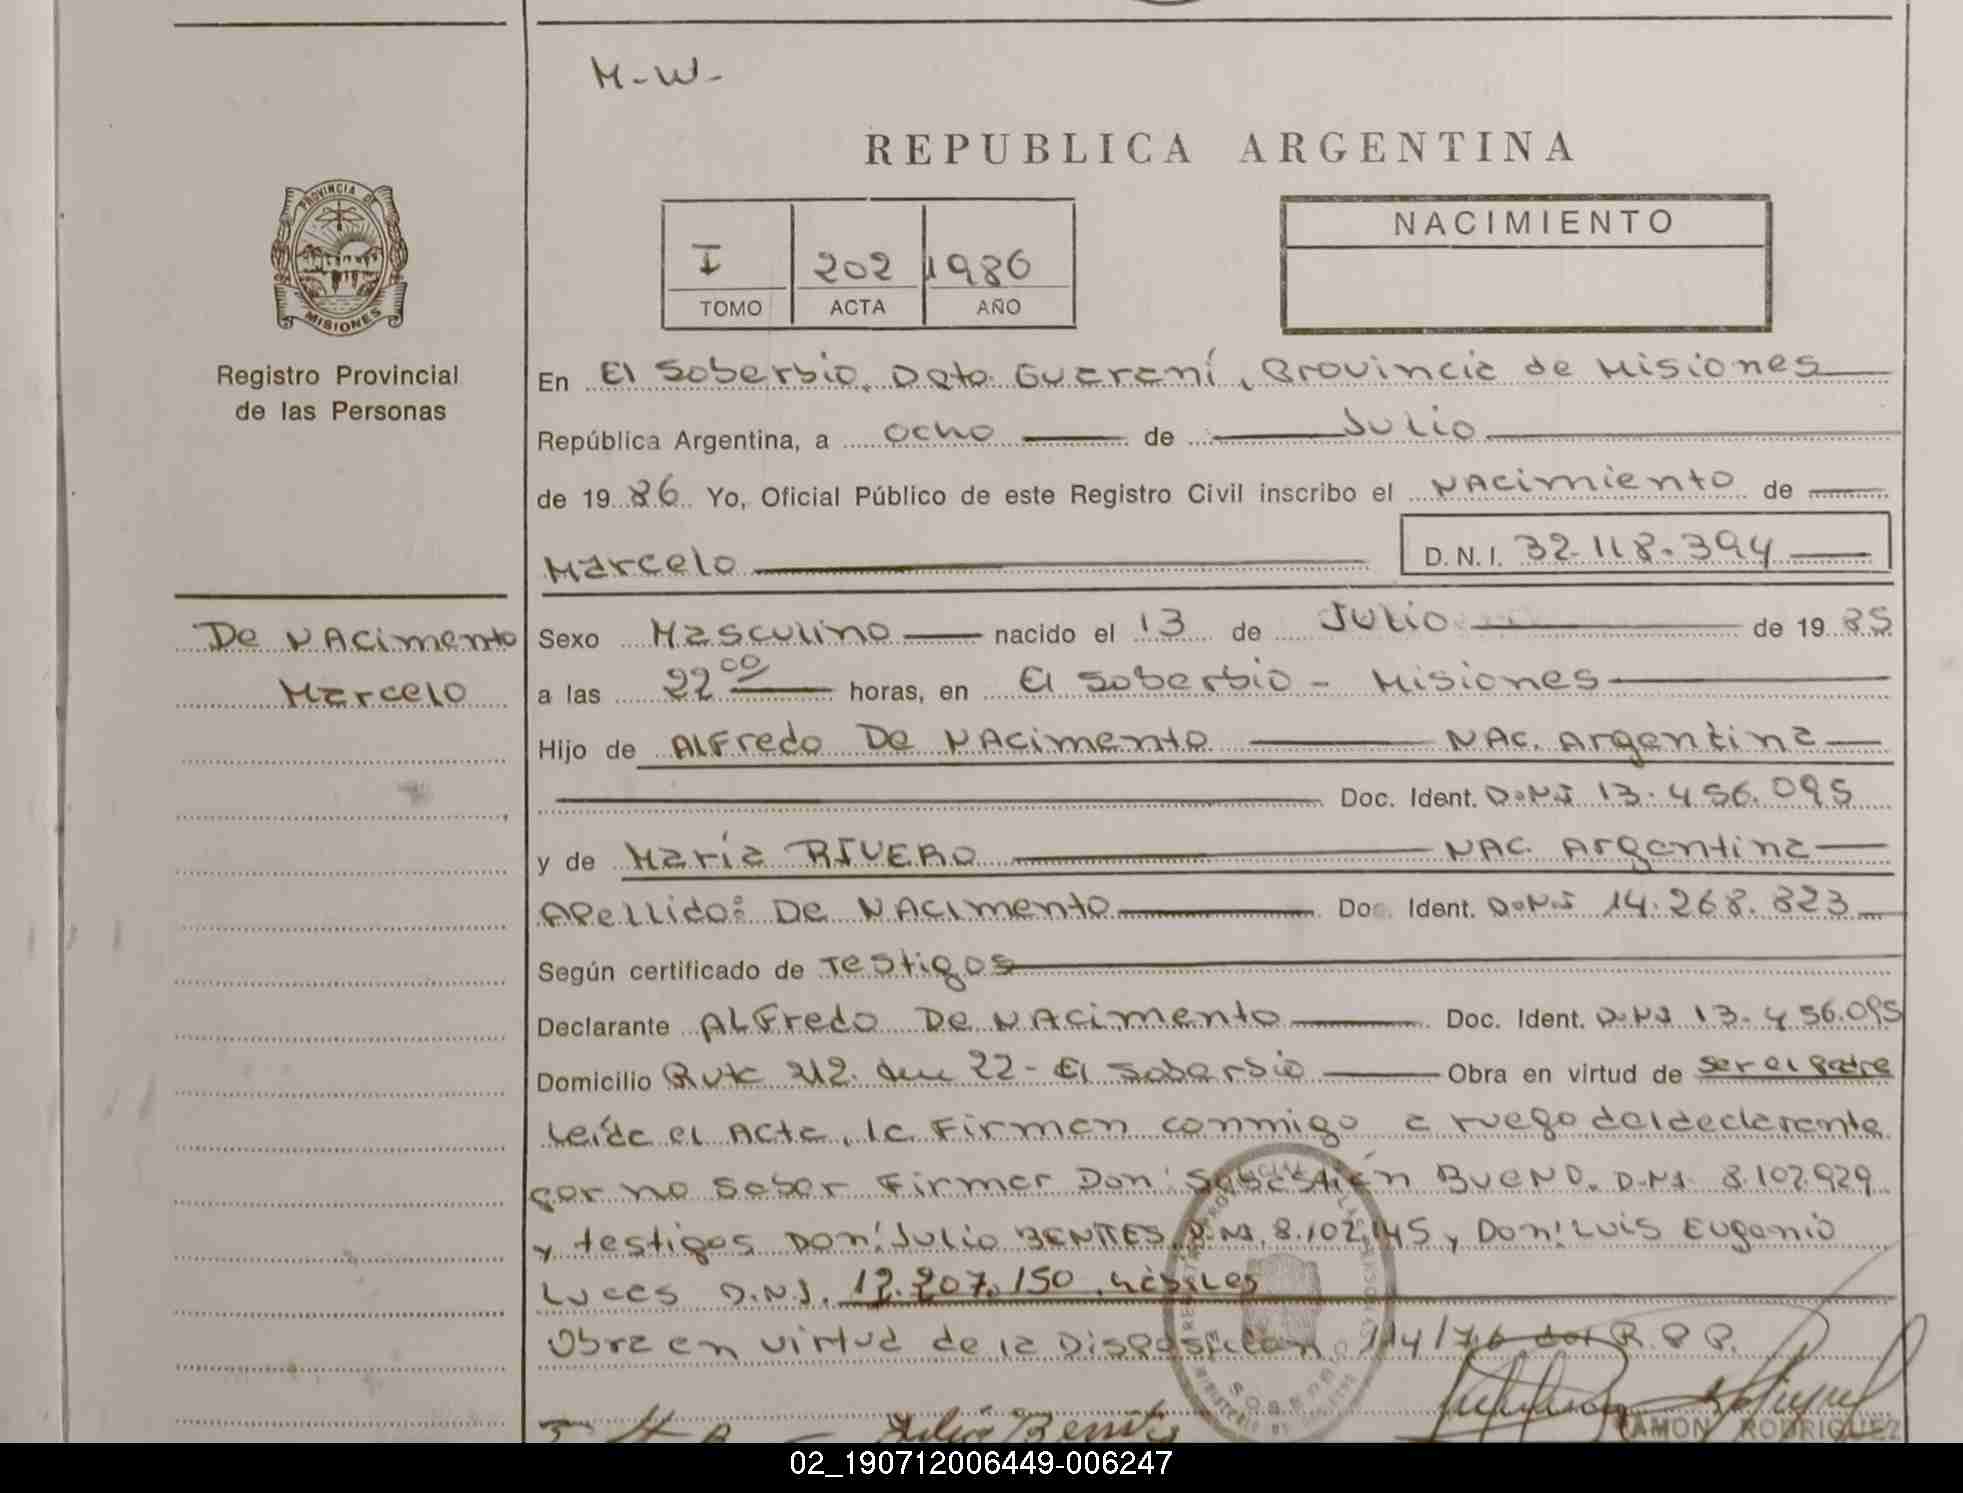 M-W-
REPUBLICA ARGENTINA
I 202 1986
TOMO ACTA AÑO
NACIMIENTO
PROVINCIA DE
MISIONES
Registro Provincial
de las Personas
En El Soberbio, Dpto Guaraní, Provincia de Misiones
República Argentina, a ocho de Julio
de 1986 Yo, Oficial Público de este Registro Civil inscribo el NAcimiento de
Marcelo D.N.I. 32.118.394
De NAcimento
Marcelo
Sexo Masculino nacido el 13 de Julio de 1985
a las 22 00 horas, en El Soberbio - Misiones
Hijo de ALFredo De NAcimento NAc. Argentina
Doc. Ident. D.N.I 13.456.095
y de María RIVERO NAC. Argentina
Apellido: De NAcimento Doc. Ident. D.N.I 14.268.823
Según certificado de Testigos
Declarante ALFredo De NAcimento Doc. Ident. D.N.I 13.456.095
Domicilio Ruta 212. 22 - El Soberbio Obra en virtud de ser el padre
Leída el Acta, la Firman conmigo a ruego del declarante
por no saber Firmar Don: Sebastián BUENO. D.N.I. 8.102.929
y testigos Don: Julio BENITES D.N.I. 8.102.145 y Don: Luis Eugenio
Luces D.N.I. 12.207.150. hábiles
Obra en virtud de la Disposición 114/76 del R.P.P.
Julio Benites
RAMON RODRIGUEZ
02_190712006449-006247